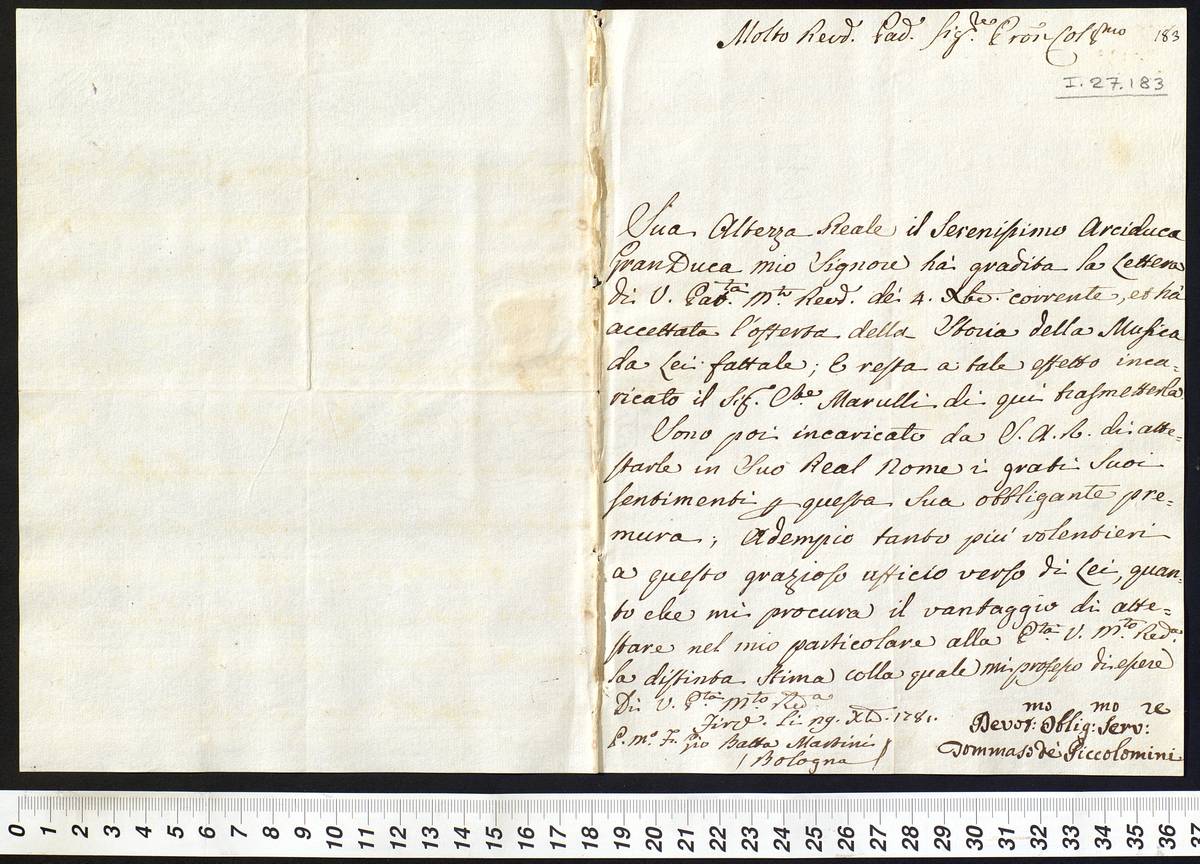 Molto Revd.º Pad.e Sig.re Pron Col.mo 183
I.27.183
Sua Altezza Reale il Serenissimo Arciduca
GranDuca mio Signore hà gradita la Lettera
di V. Pat.ta M.to Revd.ª dè 4. Xbe. corrente, et hà
accettata l'offerta della Storia della Musica
da Lei fattale; E resta a tale effetto inca=
ricato il Sig.r Marulli di qui trasmetterla
Sono poi incaricato da S. A. R. di atte=
starle in Suo Real Nome i grati Suoi
sentimenti p questa Sua obbligante pre=
mura; Adempio tanto piú volentieri
a questo grazioso ufficio verso di Lei, quan=
to che mi procura il vantaggio di atte=
stare nel mio particolare alla P.tà V. M.to Red.a
la distinta stima colla quale mi professo di essere
Di V. P.tà M.to Red.a
Firẽ. li 29. Xb. 1781.
P. M.º F. Gio Batta Martini
Bologna
Devot:mo Oblig:mo Serv:re
Tommaso dè Piccolomini
0 1 2 3 4 5 6 7 8 9 10 11 12 13 14 15 16 17 18 19 20 21 22 23 24 25 26 27 28 29 30 31 32 33 34 35 36 37